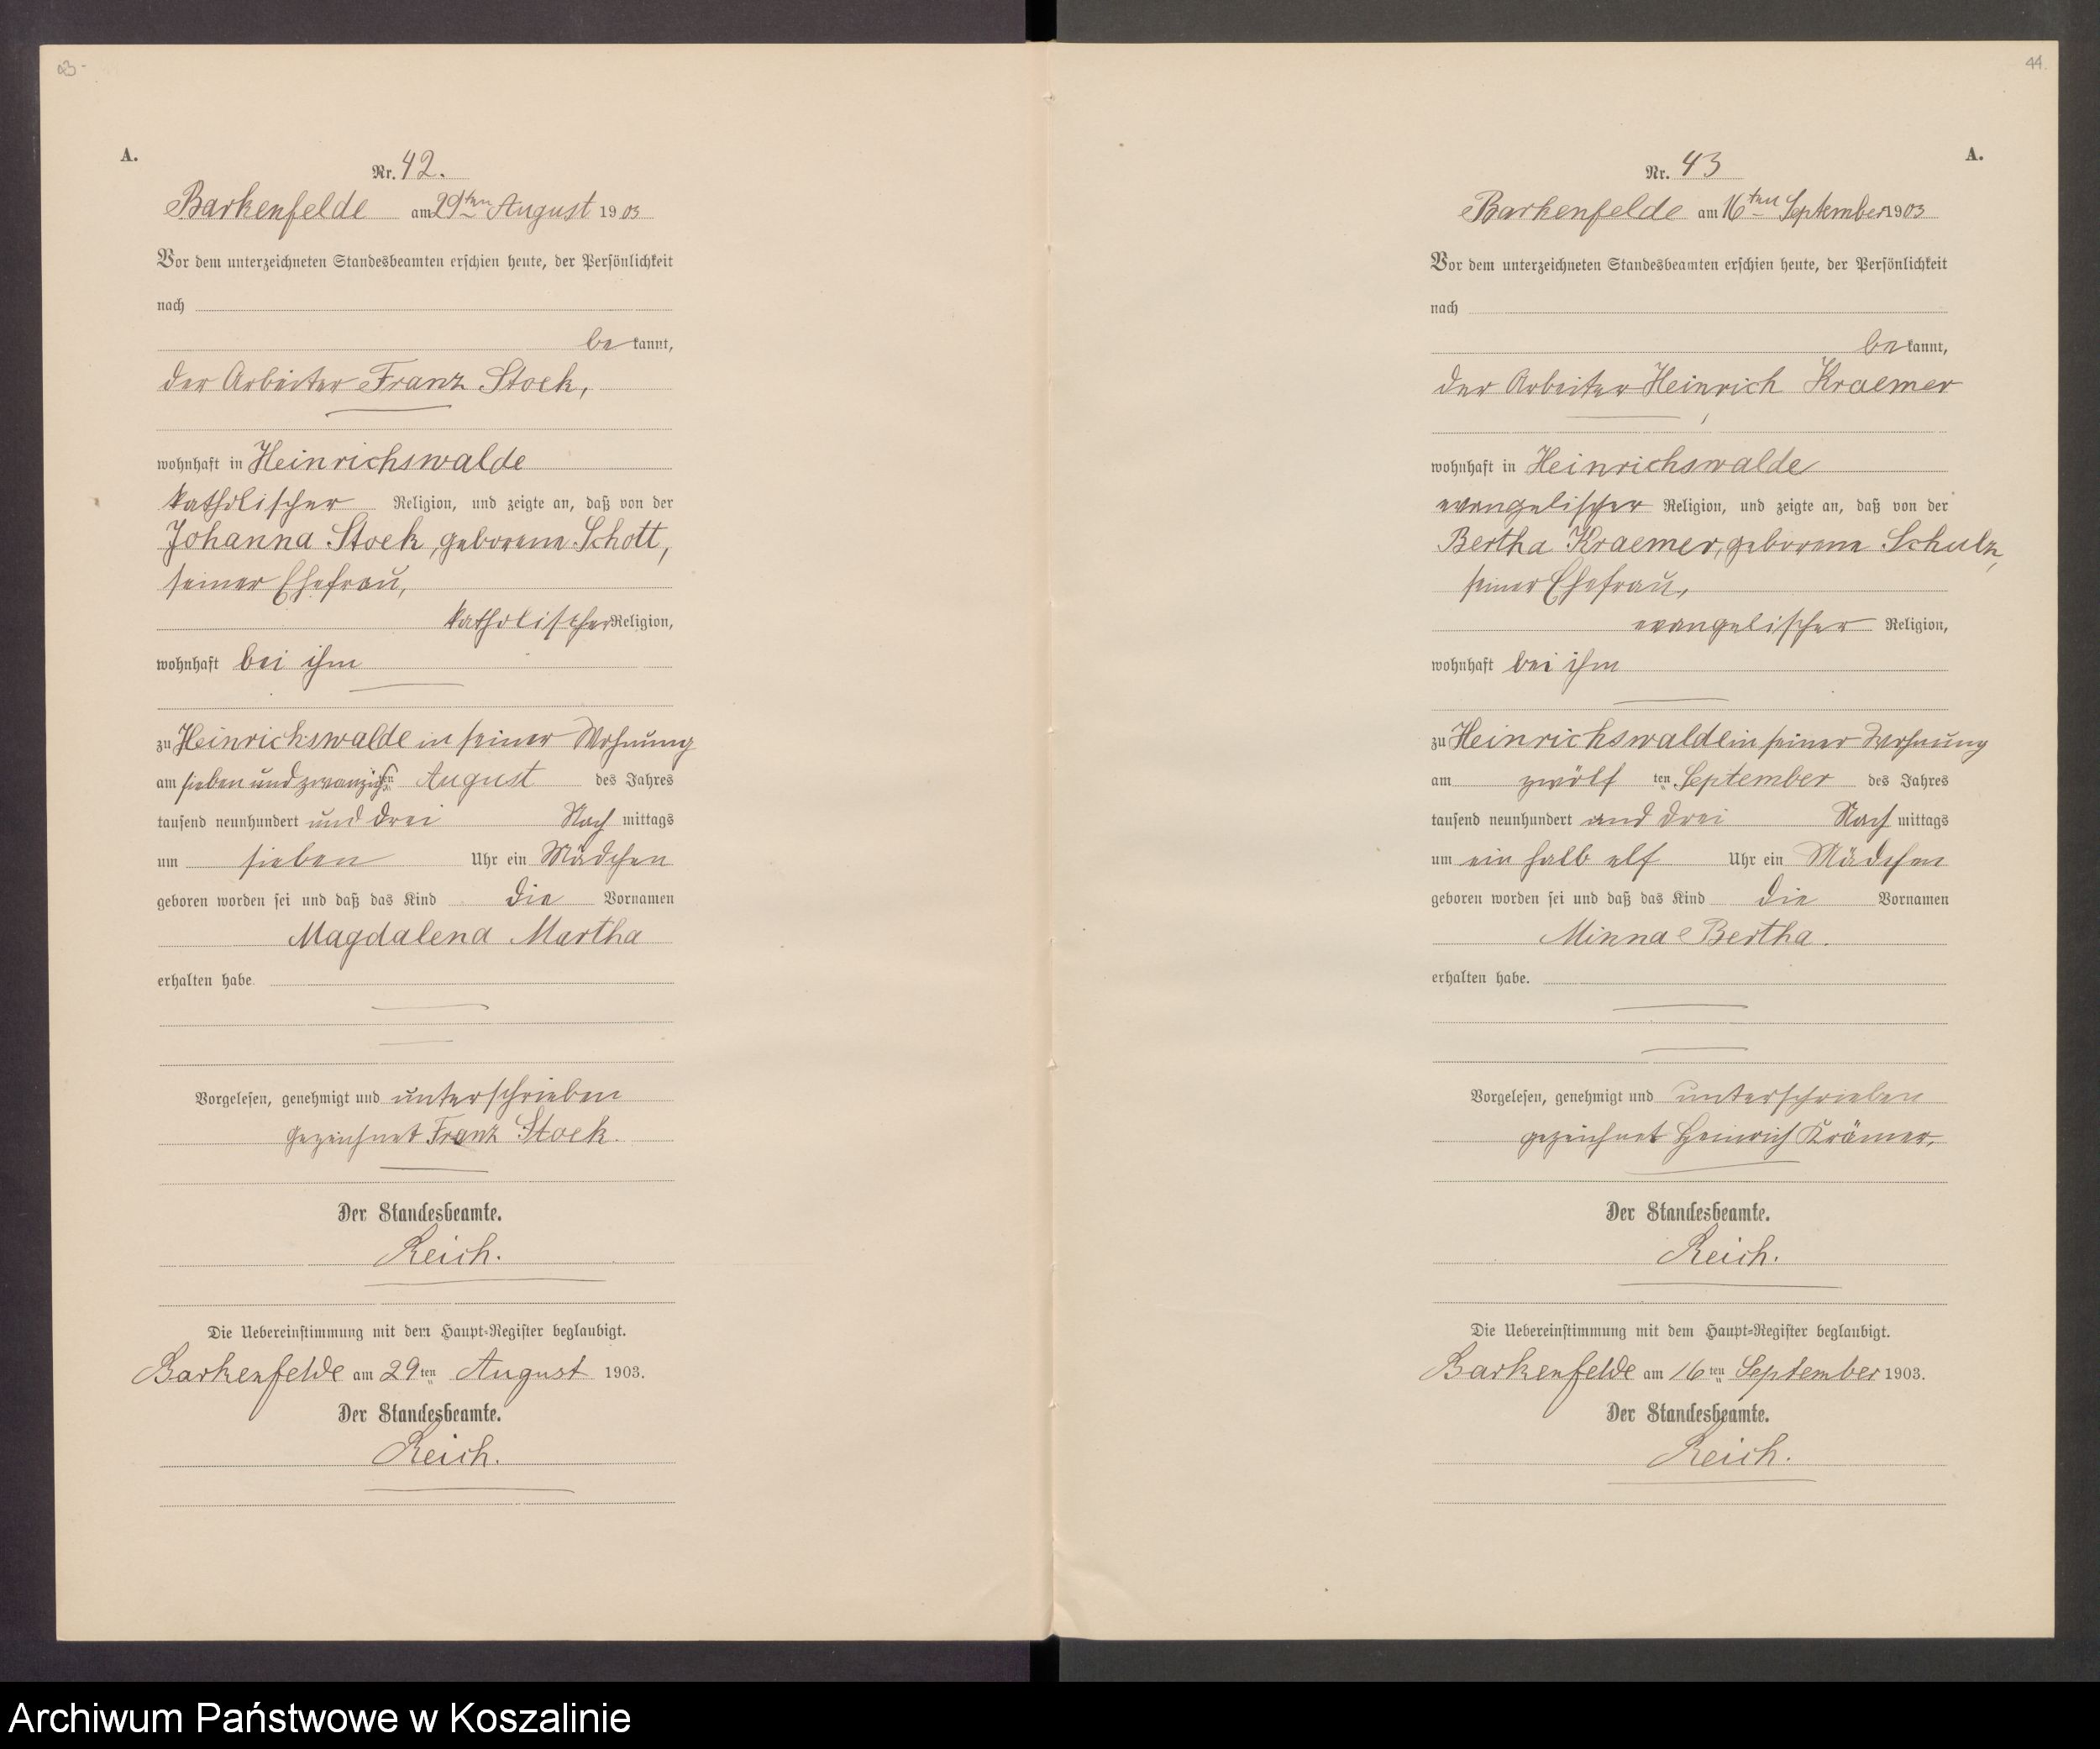 A.
Nr. 42.
Barkenfelde am 29ten August 1903
Vor dem unterzeichneten Standesbeamten erschien heute, der Persönlichkeit
nach
be kannt,
der Arbeiter Franz Stoek,
wohnhaft in Heinrichswalde
katholischer Religion, und zeigte an, daß von der
Johanna Stoek, geborene Schott,
seiner Ehefrau,
katholischer Religion,
wohnhaft bei ihm
zu Heinrichswalde in seiner Wohnung
am sieben und zwanzigsten August des Jahres
tausend neunhundert und drei Nach mittags
um sieben Uhr ein Mädchen
geboren worden sei und daß das Kind die Vornamen
Magdalena Martha
erhalten habe.
Vorgelesen, genehmigt und unterschrieben
gezeichnet Franz Stoek.
Der Standesbeamte.
Reich.
Die Uebereinstimmung mit dem Haupt-Register beglaubigt.
Barkenfelde am 29ten August 1903.
Der Standesbeamte.
Reich.
44.
A.
Nr. 43
Barkenfelde am 16ten September 1903
Vor dem unterzeichneten Standesbeamten erschien heute, der Persönlichkeit
nach
be kannt,
der Arbeiter Heinrich Kraemer,
wohnhaft in Heinrichswalde
evangelischer Religion, und zeigte an, daß von der
Bertha Kraemer, geborene Schulz,
seiner Ehefrau,
evangelischer Religion,
wohnhaft bei ihm
zu Heinrichswalde in seiner Wohnung
am zwölf ten September des Jahres
tausend neunhundert und drei Nach mittags
um ein halb elf Uhr ein Mädchen
geboren worden sei und daß das Kind die Vornamen
Minna Bertha.
erhalten habe.
Vorgelesen, genehmigt und unterschrieben
gezeichnet Heinrich Krämer.
Der Standesbeamte.
Reich.
Die Uebereinstimmung mit dem Haupt-Register beglaubigt.
Barkenfelde am 16ten September 1903.
Der Standesbeamte.
Reich.
Archiwum Państwowe w Koszalinie